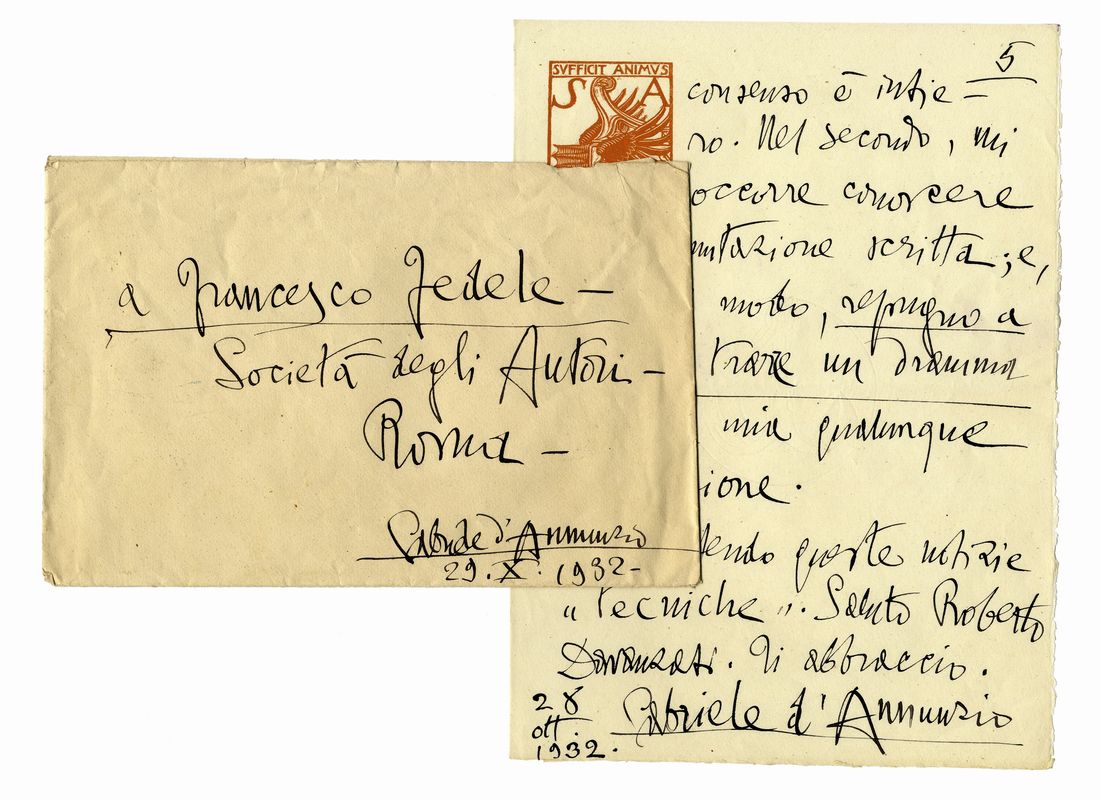 a Francesco Fedele –
Società degli Autori –
Roma –
Gabriele d'Annunzio
29. X. 1932 –
5
SVFFICIT ANIMVS
S A
consenso è intie –
ro. Nel secondo, mi
occorre conoscere
mutazione scritta; e,
modo, repugno a
trarre un dramma
mia qualunque
ione.
endo queste notizie
"tecniche". Saluto Roberto
Davanzati. Ti abbraccio.
Gabriele d'Annunzio
28
ott.
1932.